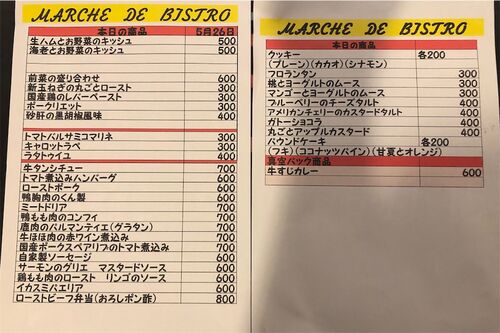 MARCHE DE BISTRO
本日の商品 5月26日
生ハムとお野菜のキッシュ 500
海老とお野菜のキッシュ 500
前菜の盛り合わせ 600
新玉ねぎの丸ごとロースト 300
国産鶏のレバーペースト 300
ポークリエット 300
砂肝の黒胡椒風味 400
トマトバルサミコマリネ 300
キャロットラペ 300
ラタトゥイユ 400
牛タンシチュー 700
トマト煮込みハンバーグ 600
ローストポーク 600
鴨胸肉のくん製 600
ミートドリア 600
鴨もも肉のコンフィ 700
鹿肉のパルマンティエ(グラタン) 700
牛ほほ肉の赤ワイン煮込み 700
国産ポークスペアリブのトマト煮込み 700
自家製ソーセージ 600
サーモンのグリエ マスタードソース 600
鶏もも肉のロースト リンゴのソース 600
イカスミパエリア 600
ローストビーフ弁当(おろしポン酢) 800
MARCHE DE BISTRO
本日の商品
クッキー 各200
(プレーン)(カカオ)(シナモン)
フロランタン 300
桃とヨーグルトのムース 300
マンゴーとヨーグルトのムース 300
ブルーベリーのチーズタルト 400
アメリカンチェリーのカスタードタルト 400
ガトーショコラ 400
丸ごとアップルカスタード 400
パウンドケーキ 各200
(フキ)(ココナッツパイン)(甘夏とオレンジ)
真空パック商品
牛すじカレー 600